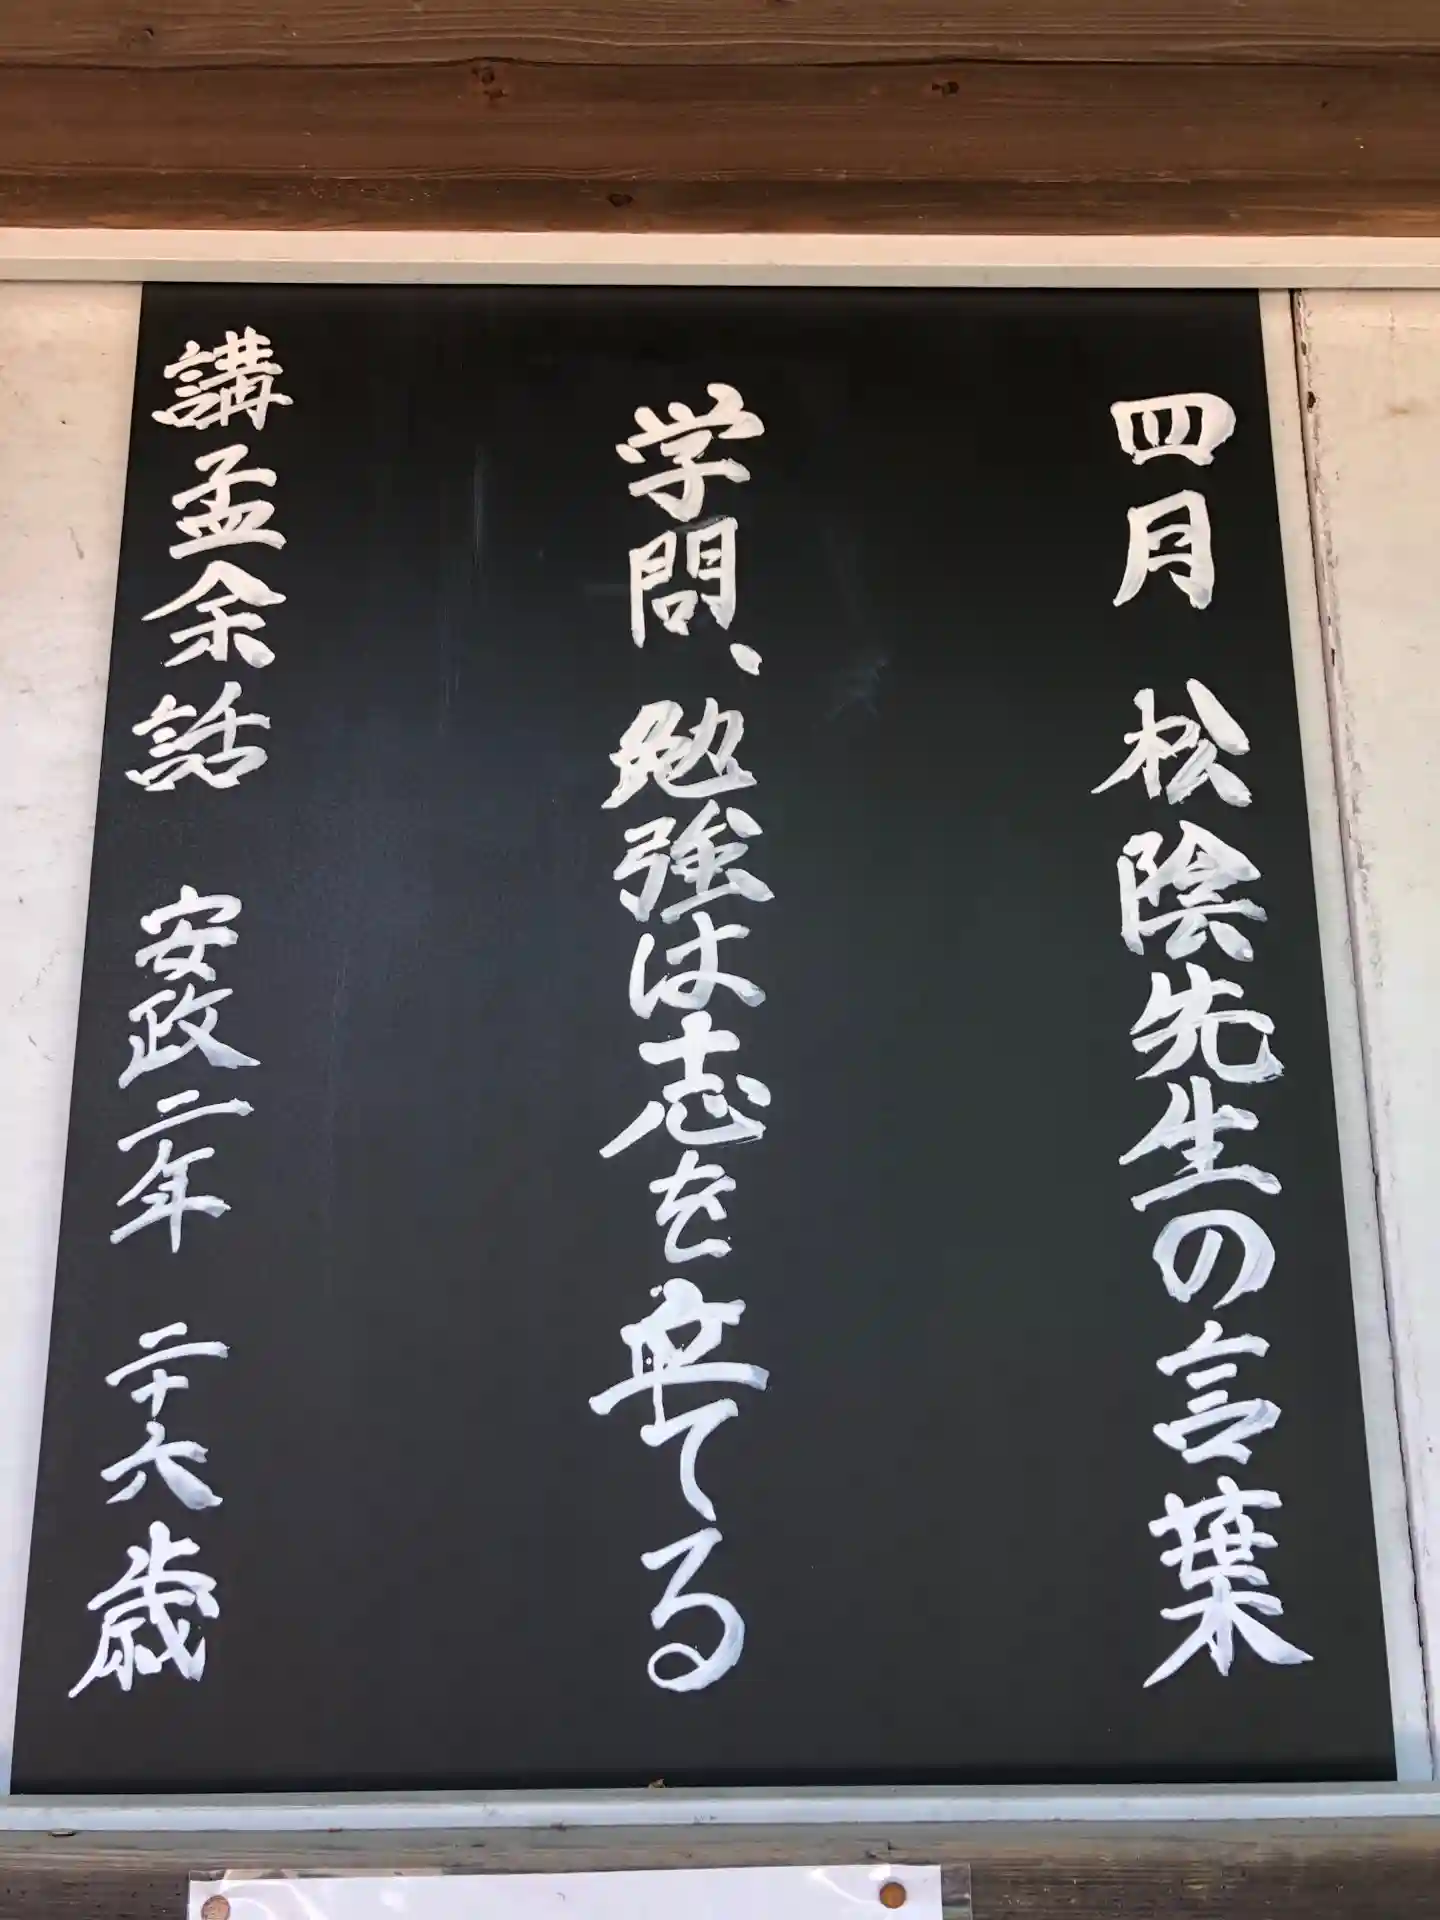 四月 松陰先生の言葉
学問、勉強は志を立てる
講孟余話 安政二年 二十六歳